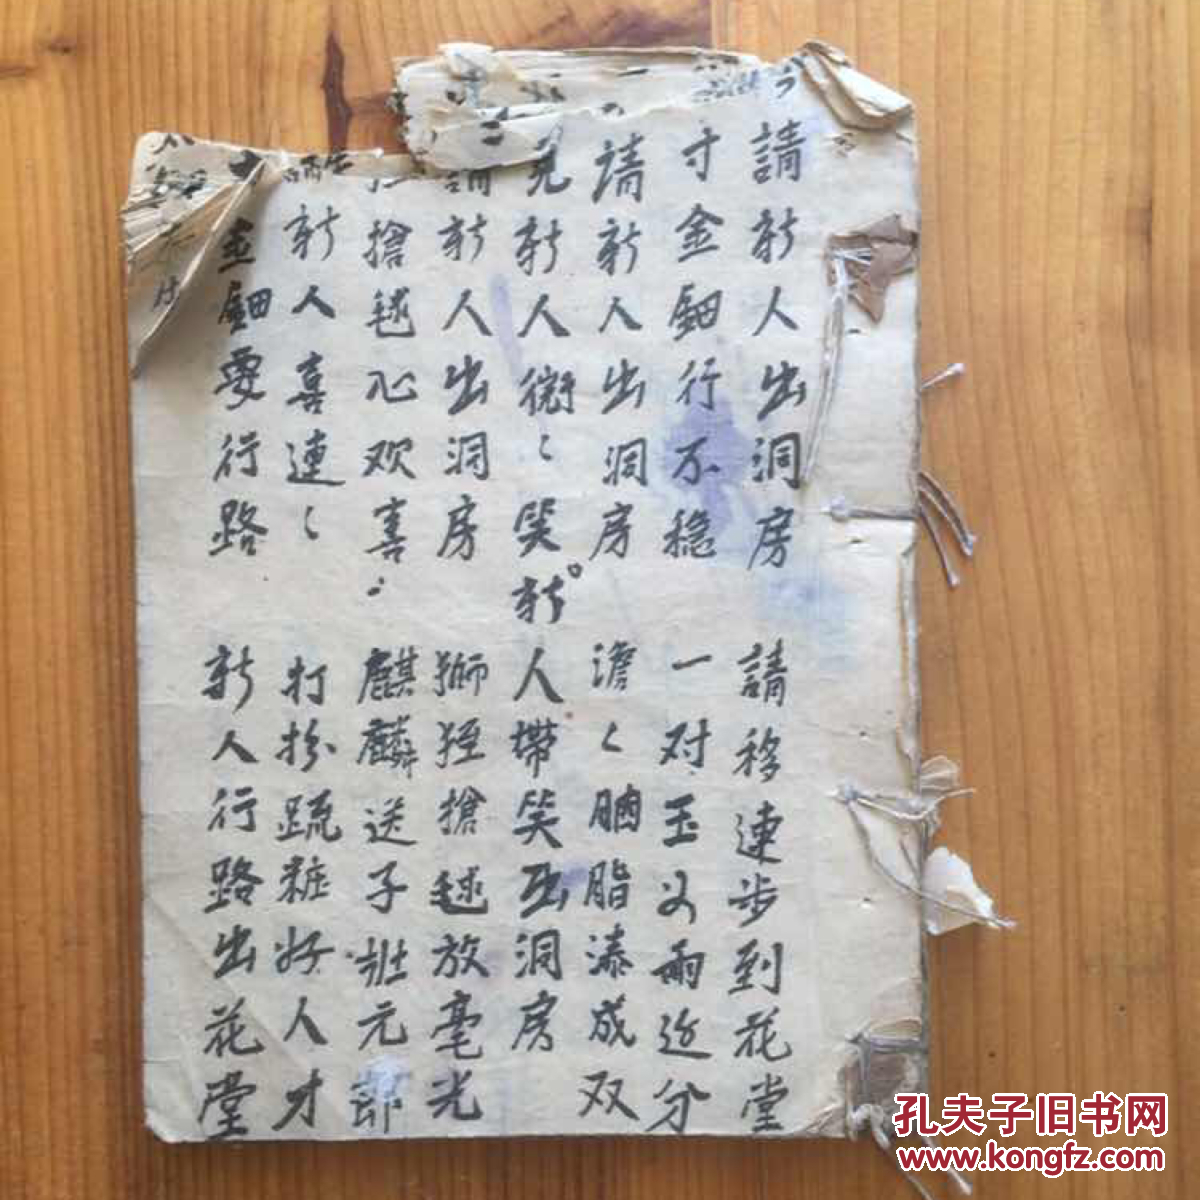 請新人出洞房 請移連步到花堂
寸金鈿行不穏 一对玉 又兩近分
請新人出洞房 澹〻胭脂漆成双
見新人微〻笑 新人帶笑出洞房
請新人出洞房 獅狂搶毬放毫光
搶毬心欢喜 麒麟送子壯元郎
新人喜連〻 打扮疏粧好人才
金鈿要行路 新人行路出花堂
孔夫子旧书网
www.kongfz.com